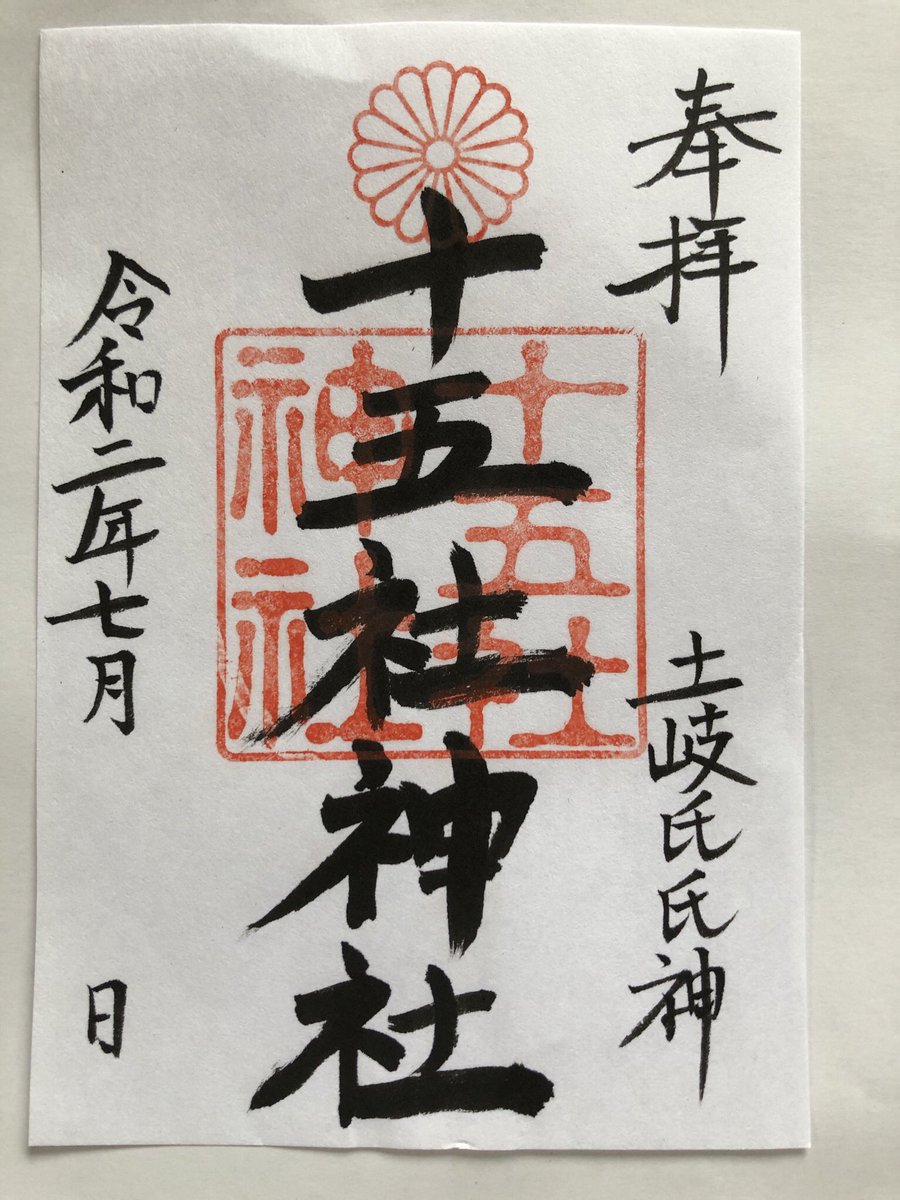 奉拝
土岐氏氏神
十五社神社
十五社
神社
令和二年七月
日